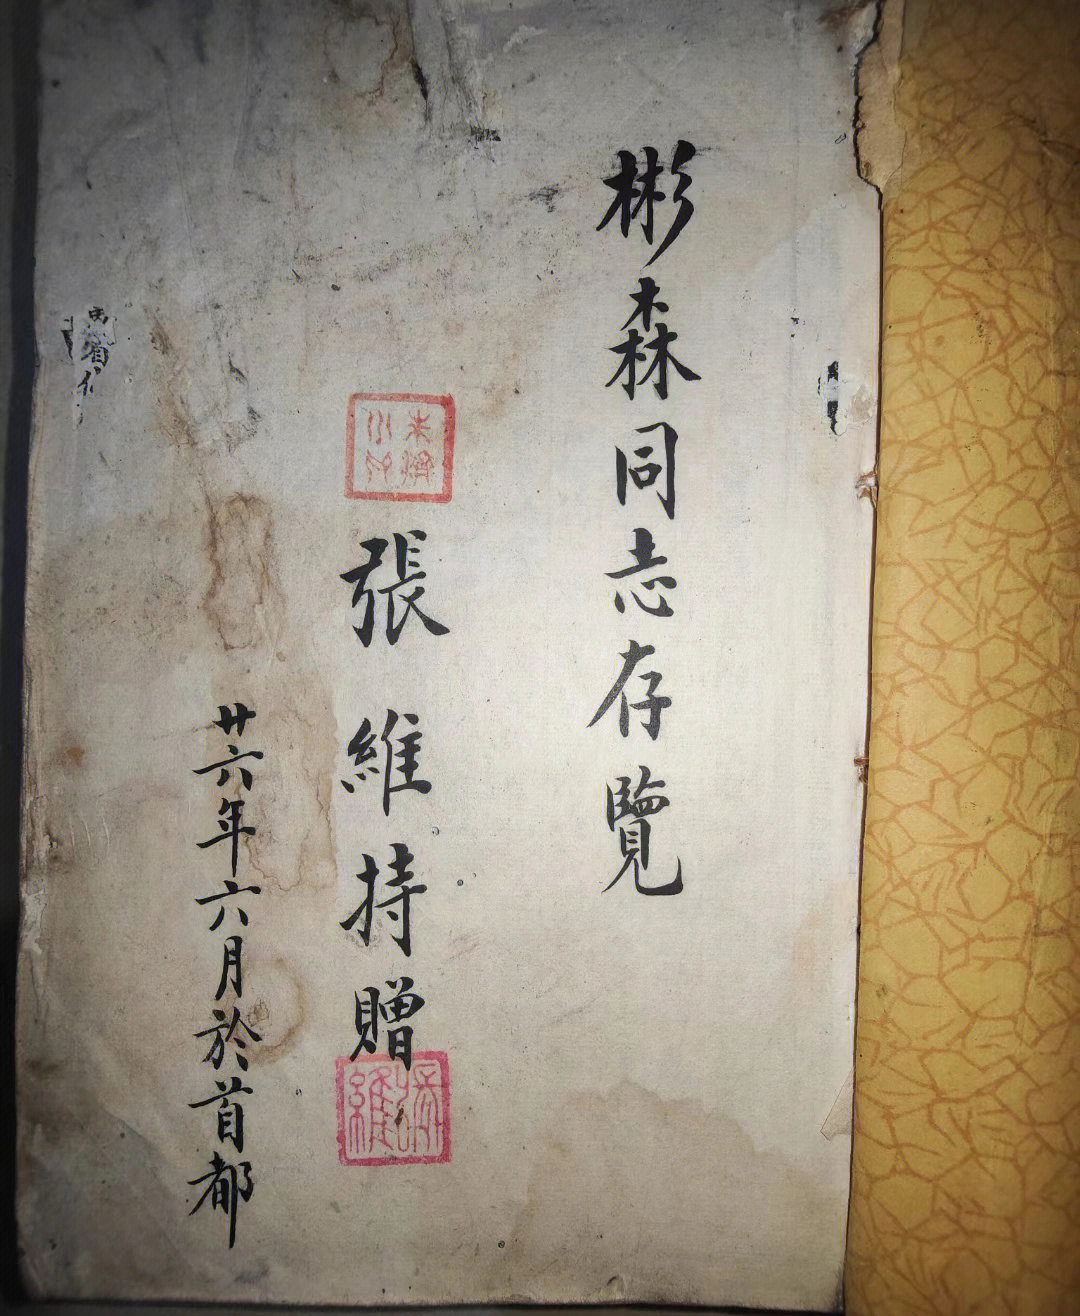 彬森同志存覽
張維持贈
廿六年六月於首都